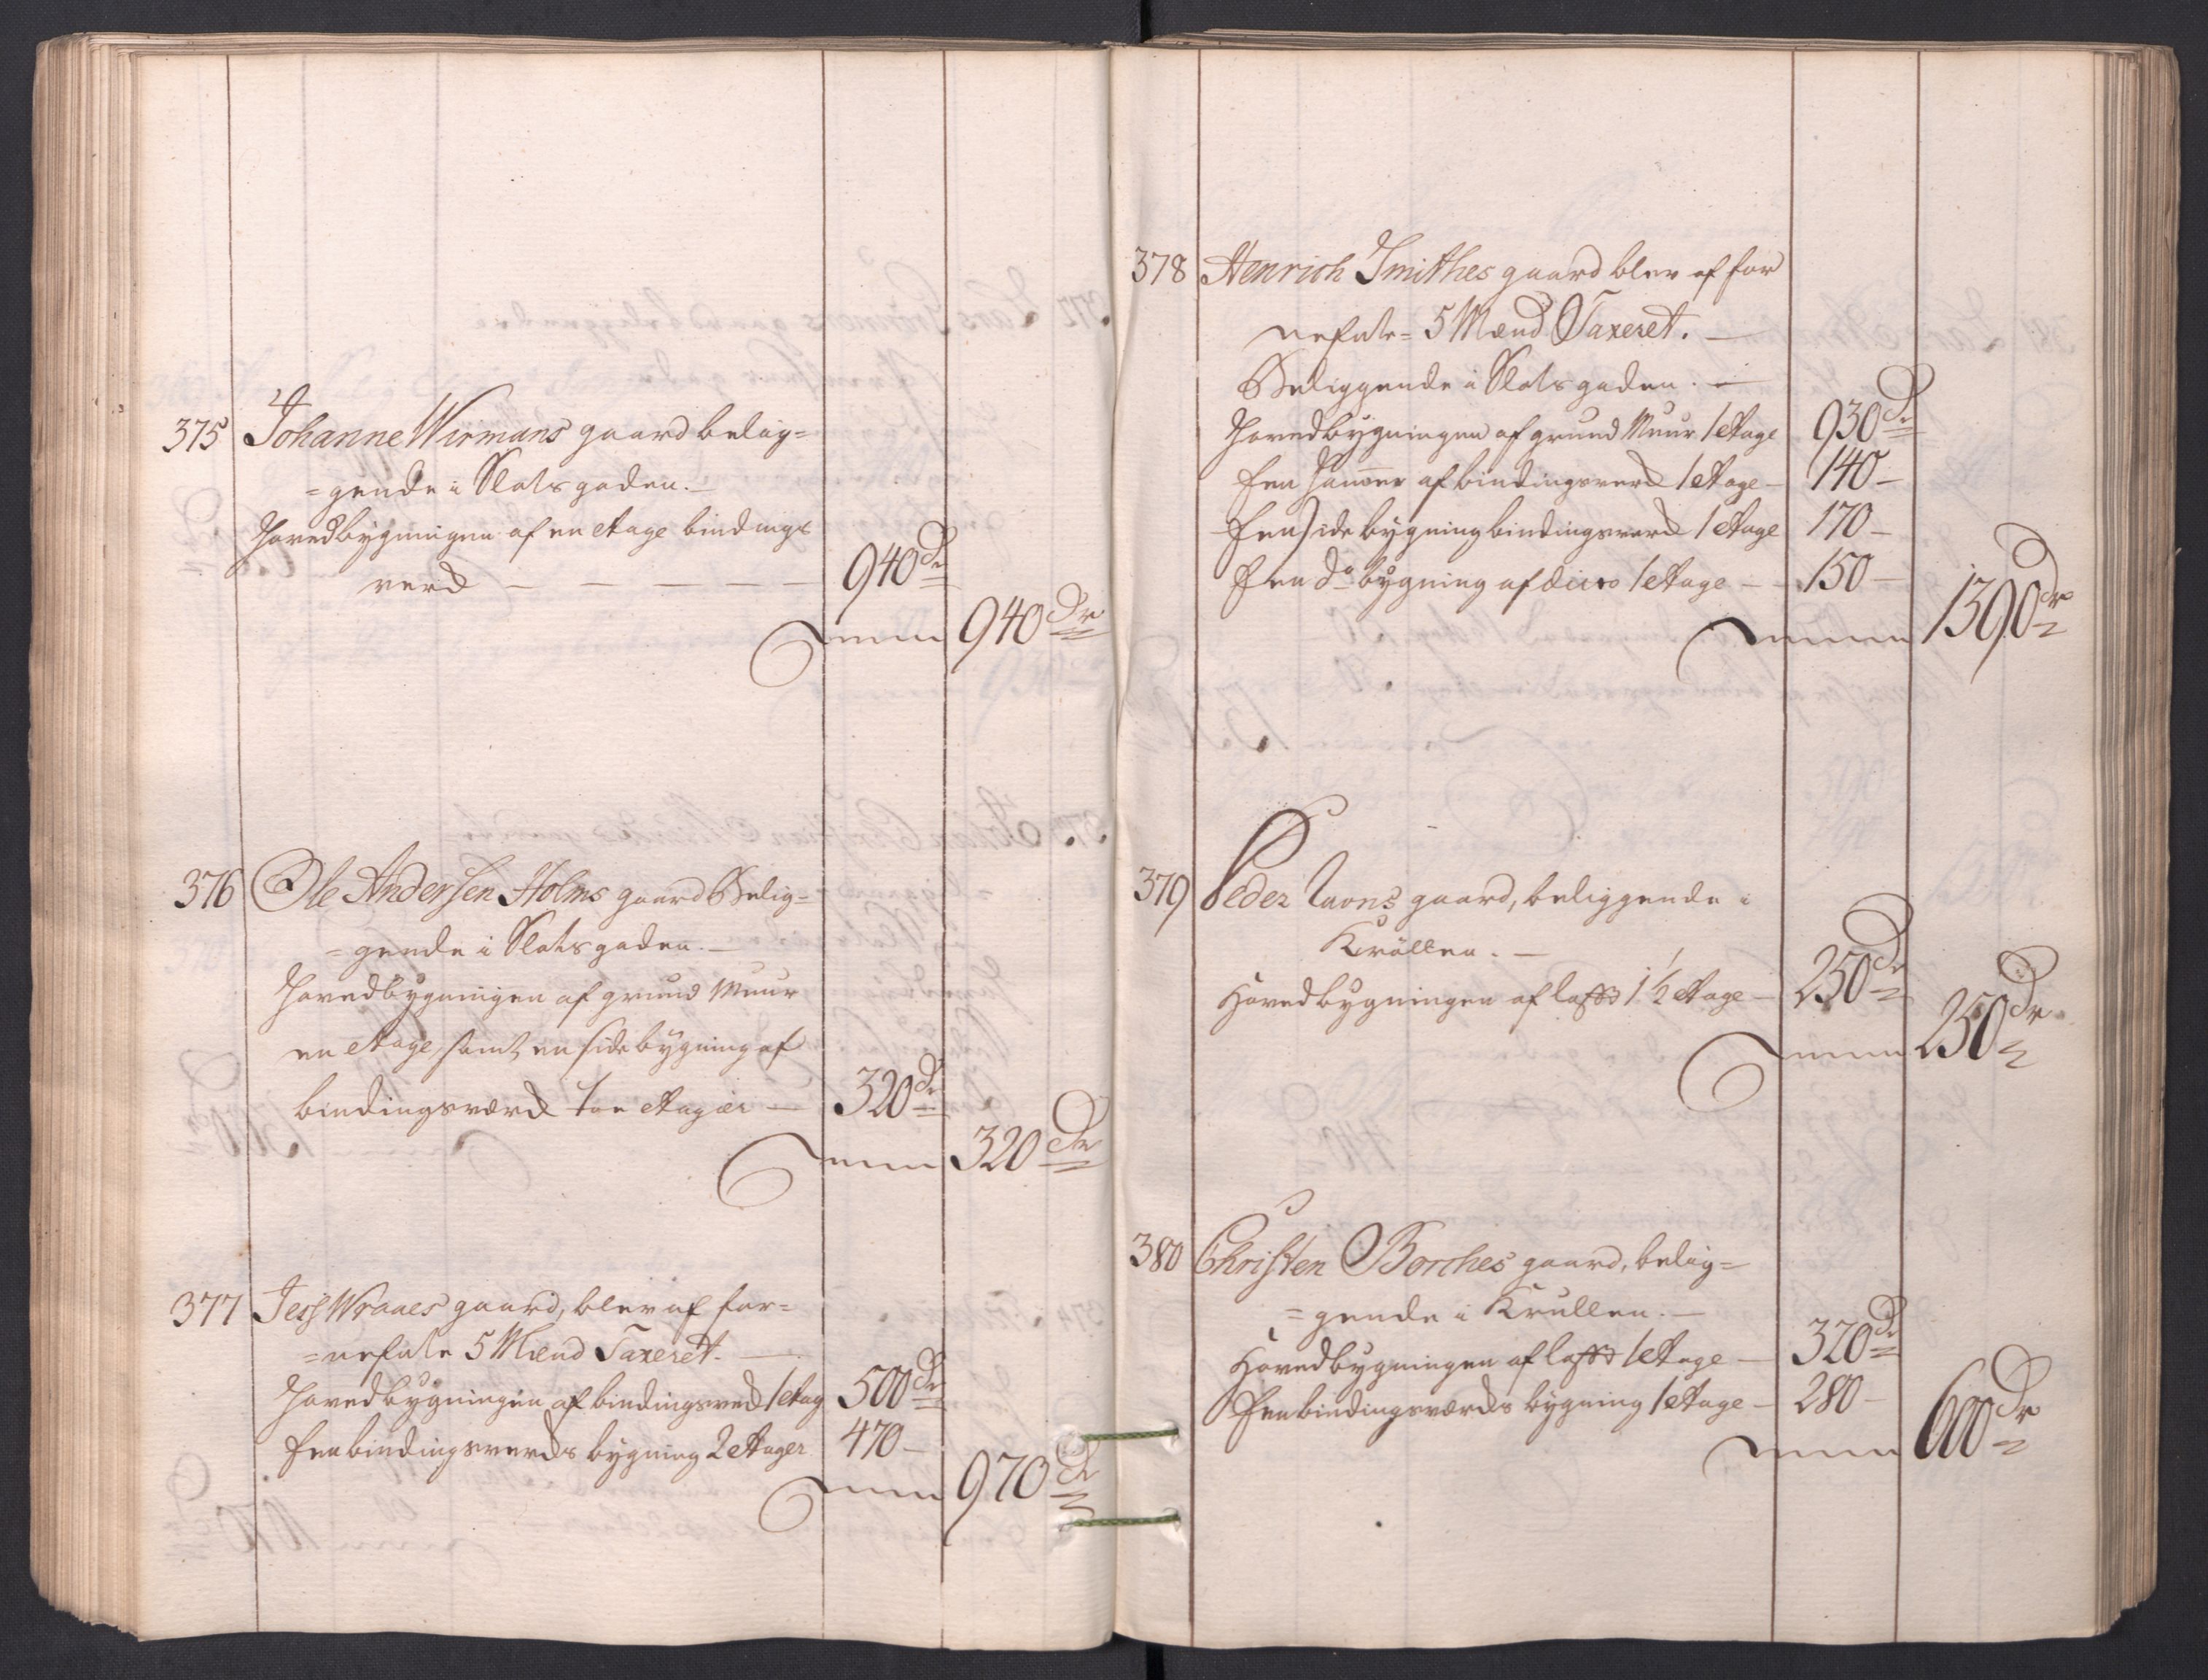 375 Johanne Wirmans gaard belig=
=gende i Slotsgaden.—
Hovedbygningen af en etage bindings
verd — — — — — 940 Dr
Summa 940 Dr
376 Ole Andersen Holms gaard Belig=
=gende i Slotsgaden.—
Hovedbygningen af grund Muur
en etage, samt en side bygning af
bindingsværd toe etagier — 320 Dr
Summa 320 Dr
377 Jess Wraaes gaard, blev af for=
=nefnte 5 Mænd Taxeret.—
Hovedbygningen af bindingsverd 1 etag 500 Dr
En bindingsverds bygning 2 etager 470 —
Summa 970 Dr
378 Henrich Smithes gaard blev af for
nefnte= 5 Mænd Taxeret.—
Beliggende i Slotsgaden.—
Hovedbygningen af grund Muur 1 etage 930 Dr
Een af bindingsverd 1 etage — 140 —
Een side bygning bindingsverd 1 etage 170 —
Een do bygning af ditto 1 etage — 150 —
Summa 1390 Dr
379 Peder Ravns gaard, beliggende i
Krøllen.—
Hovedbygningen af 1½ etage — 250 Dr
Summa 250 Dr
380 Christen Borches gaard, belig=
=gende i Krullen.—
Hovedbygningen af 1 etage — 320 Dr
Een bindingsværds bygning 1 etage — 280 —
Summa 600 Dr